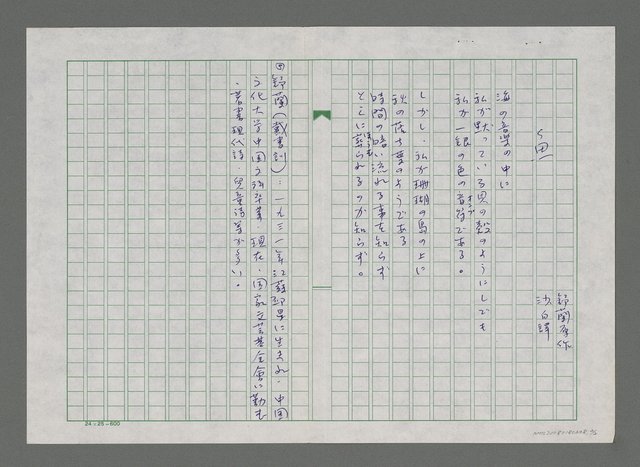 鈴蘭原作
沙白譯
海の音楽の中に
私が黙っている貝の殻のようにしても
私が一銀の色の音符である。
オンプ
しかし、私が珊瑚の島の上に
秋の落ち葉のようである
時間の暗い流れる事を知らず
ともに葬られるのか知らず。
ほうむ
鈴蘭(戴書訓):一九三一年江蘇 県に生まれ、中国
文化大学中国文 卒業、現在、国家文芸基金會に勤む
、著書現代詩 児童詩等が多い。
24×25=600